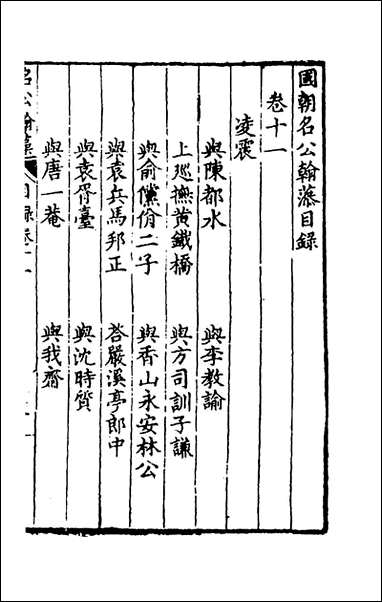 國朝名公翰藻目録
卷十一
凌震
與陳都水
與李教諭
上巡撫黄鐵橋
與方司訓子謙
與俞儻俏二子
與香山永安林公
與袁兵馬邦正
荅嚴溪亭郎中
與袁胥臺
與沈時質
與唐一菴
與我齋
名公翰藻
目録卷十一